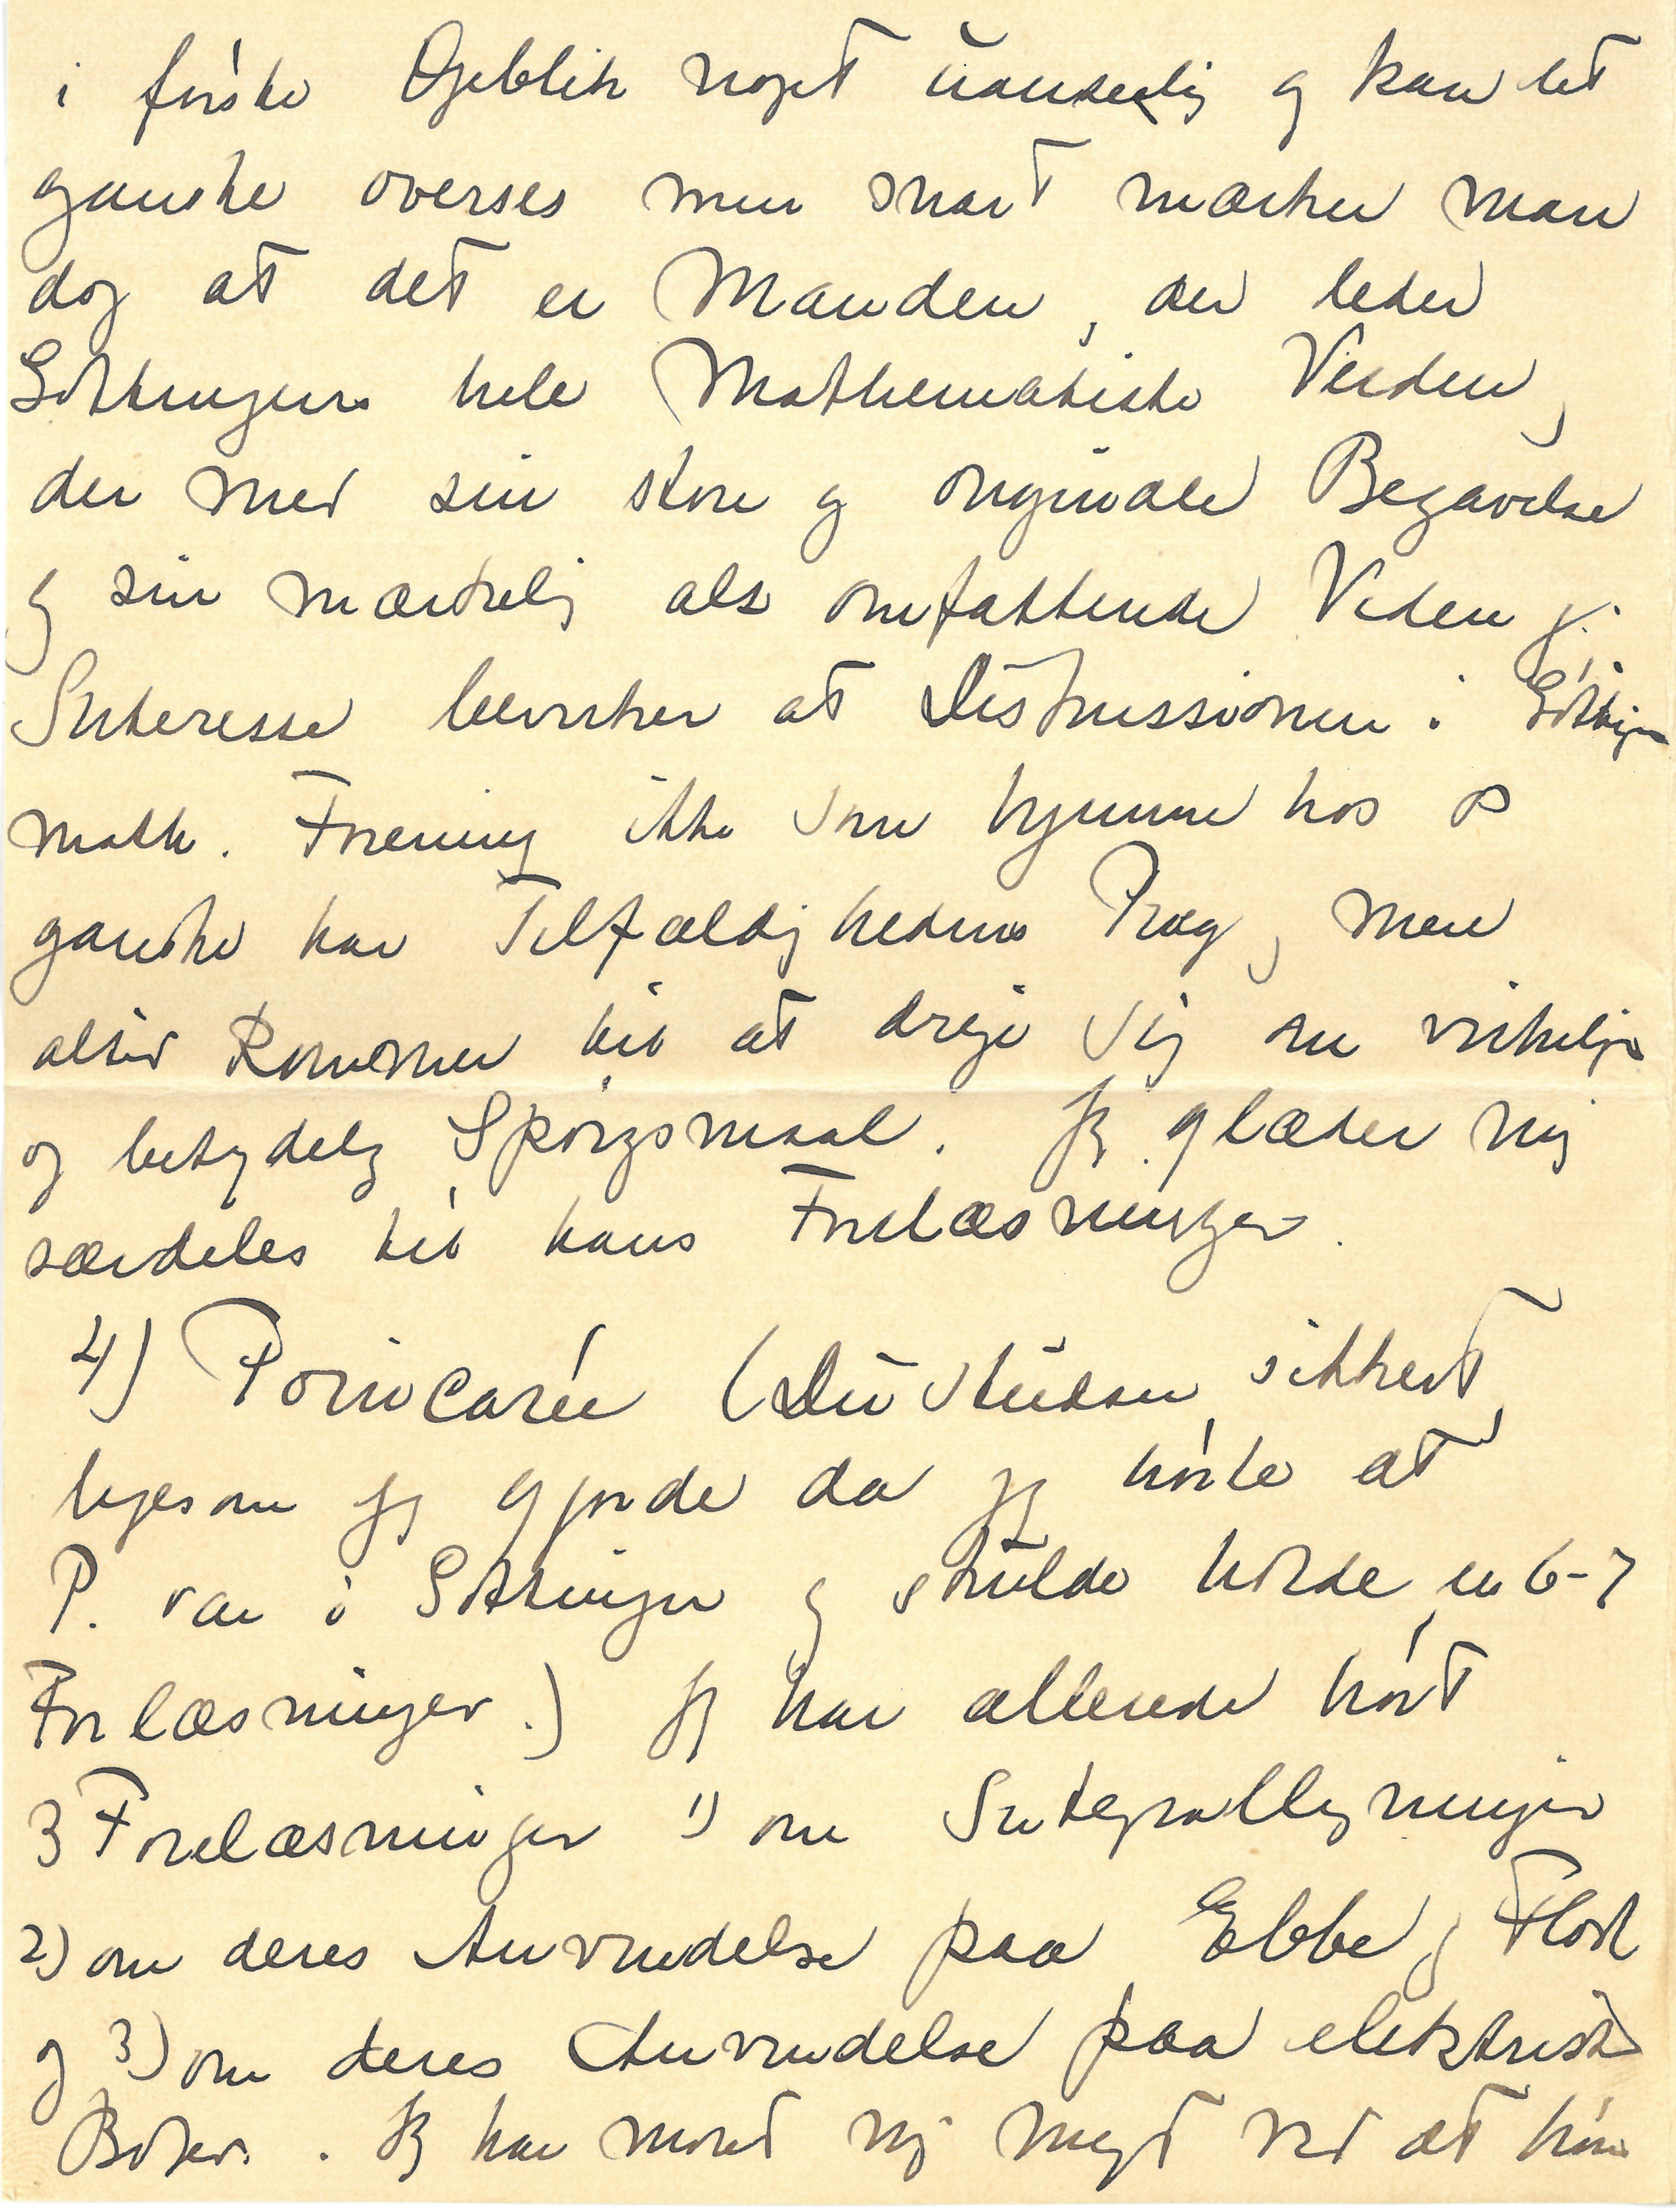 i første Øjeblik noget uanseelig og kan let
ganske overses men snart mærker man
dog at det er Manden, der leder
Göttingens hele Mathematiske Verden,
der med sin store og originale Begavelse
og sin mærkelig als omfattende Viden og
Interesse bevirker at Diskussionen i Göttingen
math. Forening ikke som hjemme hos os
ganske har Tilfældighedens Præg, men
altid kommer til at dreje sig om virkelige
og betydelig Spørgsmaal. Jeg glæder mig
særdeles til hans Forelæsninger.
4) Poincarée (Du studser sikkert
ligesom jeg gjorde da jeg hørte at
P. var i Göttingen og skulde holde en 6-7
Forlæsninger.) Jeg har allerede hørt
3 Forelæsninger 1) om Integralligninger
2) om deres Anvendelse paa Ebbe og Flod
og 3) om deres Anvendelse paa elektriske
Bølger. Jeg har moret mig meget ved at høre